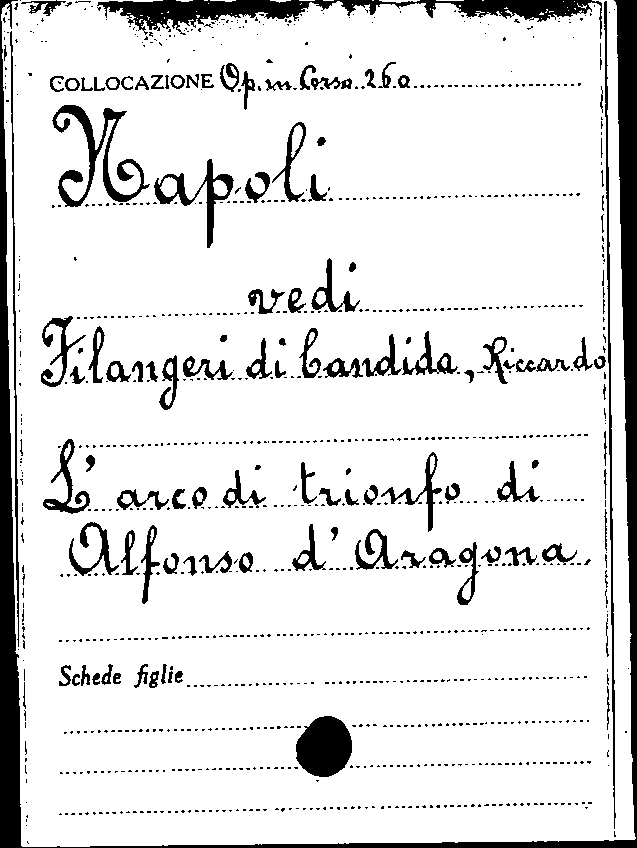 COLLOCAZIONE Op. in Corso 260
Napoli
vedi
Filangeri di Candida, Riccardo
L'arco di trionfo di
Alfonso d'Aragona.
Schede figlie